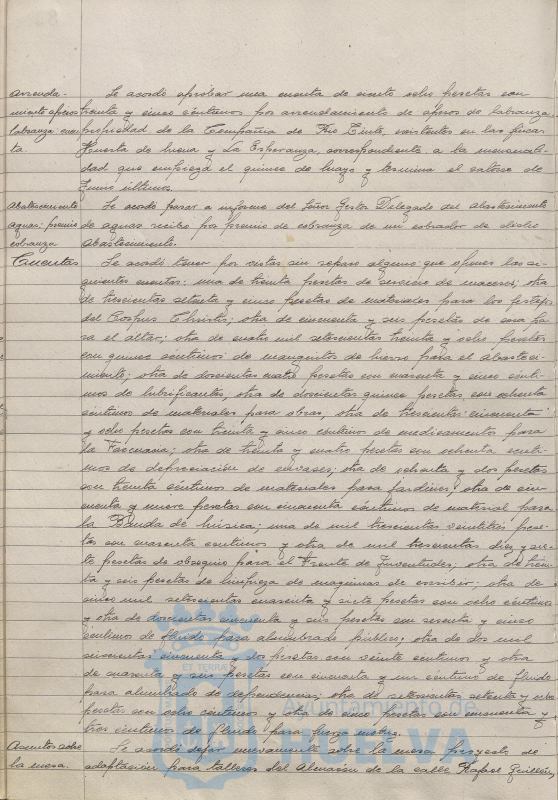 Arrenda- Se acordó aprobar una cuenta de ciento ocho pesetas con
miento aperos treinta y cinco céntimos por arrendamiento de aperos de labranza
labranza cuen- propiedad de la Compañía de Rio Tinto, existentes en las fincas
ta Huerta de Mena y La Esperanza, correspondiente a la mensuali-
dad que empieza el quince de mayo y termina el catorce de
Junio último.
Abastecimiento Se acordó pasar a informe del Señor Gestor Delegado del Abastecimiento
aguas: premio de aguas recibo por premio de cobranza de un cobrador de dicho
cobranza Abastecimiento.
Cuentas Se acordó tener por vistas sin reparo alguno que oponer las si-
guientes cuentas: una de treinta pesetas de servicio de maceros; otra
de trescientas setenta y cinco pesetas de materiales para los festejos
del Corpus Christi; otra de cincuenta y seis pesetas de cera pa-
ra el altar; otra de cuatro mil setecientas treinta y ocho pesetas
con quince céntimos de manguitos de hierro para el abasteci-
miento; otra de doscientas cuatro pesetas con cuarenta y cinco cénti-
mos de lubrificantes, otra de doscientas quince pesetas con ochenta
céntimos de materiales para obras, otra de trescientas cincuenta
y ocho pesetas con treinta y cinco céntimos de medicamentos para
la Farmacia; otra de treinta y cuatro pesetas con ochenta cénti-
mos de depreciación de envases; otra de ochenta y dos pesetas
con treinta céntimos de materiales para jardines; otra de cin-
cuenta y nueve pesetas con cincuenta céntimos de material para
la Banda de Música; una de mil trescientas veintitrés pese-
tas con cuarenta céntimos y otra de mil trescientas diez y sie-
te pesetas de obsequio para el Frente de Juventudes; otra de trein-
ta y seis pesetas de limpieza de maquinas de escribir, otra de
cinco mil setecientas cuarenta y siete pesetas con ocho céntimos
y otra de doscientas cincuenta y seis pesetas con sesenta y cinco
céntimos de fluido para alumbrado público; otra de dos mil
cincuenta y dos pesetas con veinte céntimos y otra
de cuarenta y seis pesetas con cincuenta y un céntimo de fluido
para alumbrado de dependencias; otra de setecientas setenta y ocho
pesetas con ocho céntimos y otra de cinco pesetas con cincuenta y
tres céntimos de fluido para fuerza motriz.
Asuntos sobre Se acordó dejar nuevamente sobre la mesa proyecto de
la mesa. adaptación para talleres del Almacén de la calle Rafael Guillén,
ET TERRAE
Ayuntamiento de
HUELVA